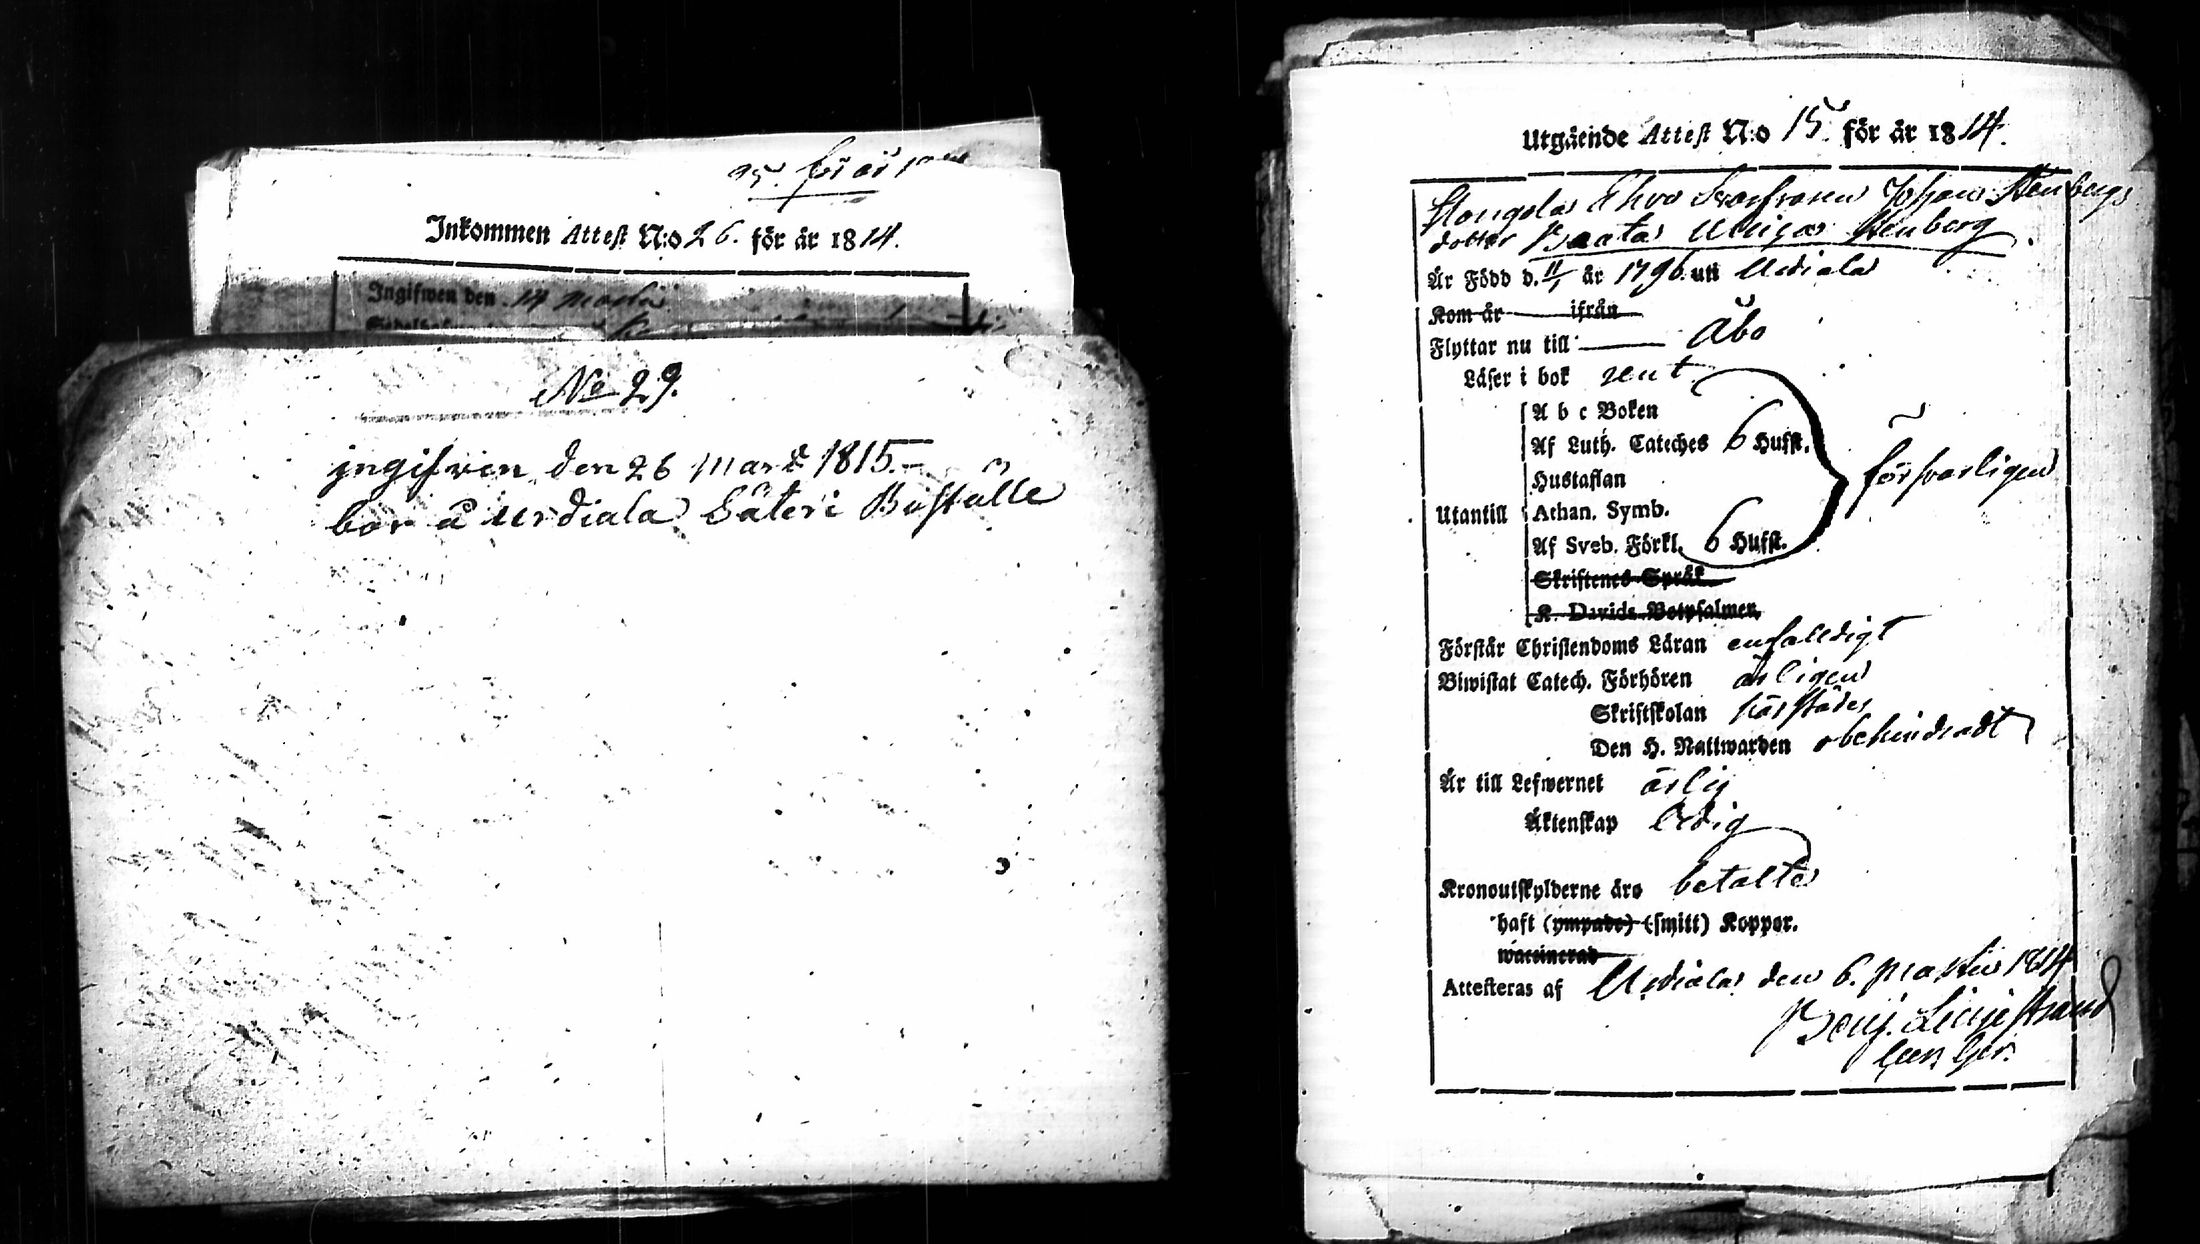 25. för år
Inkommen Attest N:o 26. för år 1814.
Ingifwen den 14 Martii
No 29.
ingifven den 26 Mart 1815.-
bor å Urdiala Säteri Boställe
Utgående Attest N:o 15. för år 1814.
Johan Stenbergs
dotter Beata Stenberg
Är Född d. 11/1 år 1796 uti Urdiala
Kom år ifrån
Flyttar nu till Åbo
Läser i bok rent
A b c Boken
Af Luth. Cateches 6 Hufst.
Hustaflan
försvarligen
Utantill Athan. Symb.
Af Sveb. Förkl. 6 Hufst.
Skriftenes Språk
K. Davids Botpsalmer
Förstår Christendoms Läran enfalldigt
Biwistat Catech. Förhören årligen
Skriftskolan härstädes
Den H. Nattwarden obehindradt
Är till Lefwernet ärlig
Äktenskap ledig
Kronoutskylderne äro betalte
haft (ympade) (smitt) Koppor.
waccinerad
Attesteras af Urdiala den 6. Martii 1814
Benj. Liljestrand